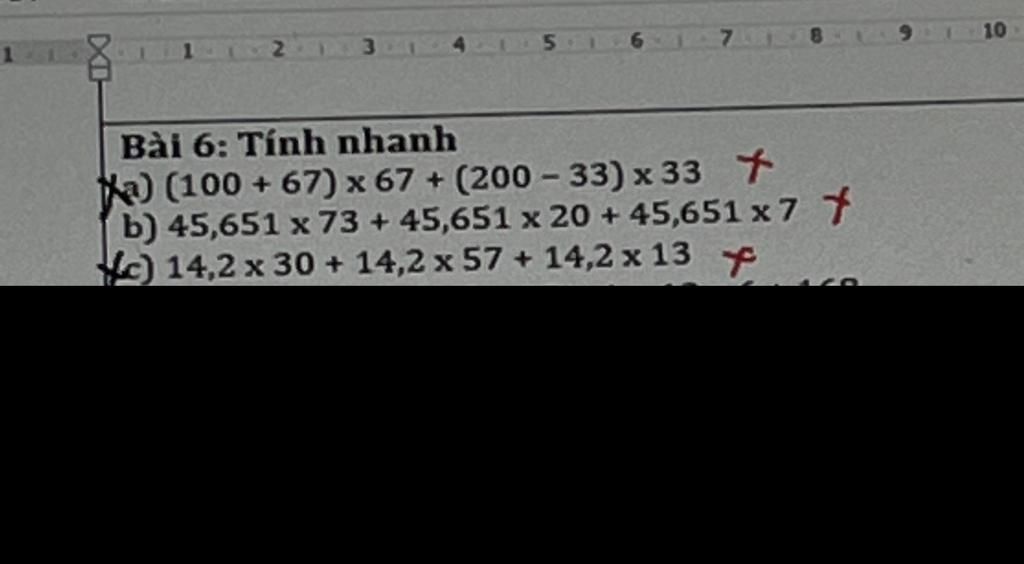 1 1 2 3 4 5 6 7 8 9 10
Bài 6: Tính nhanh
a) (100 + 67) x 67 + (200 – 33) x 33
b) 45,651 x 73 + 45,651 x 20 + 45,651 x 7
c) 14,2 x 30 + 14,2 x 57 + 14,2 x 13